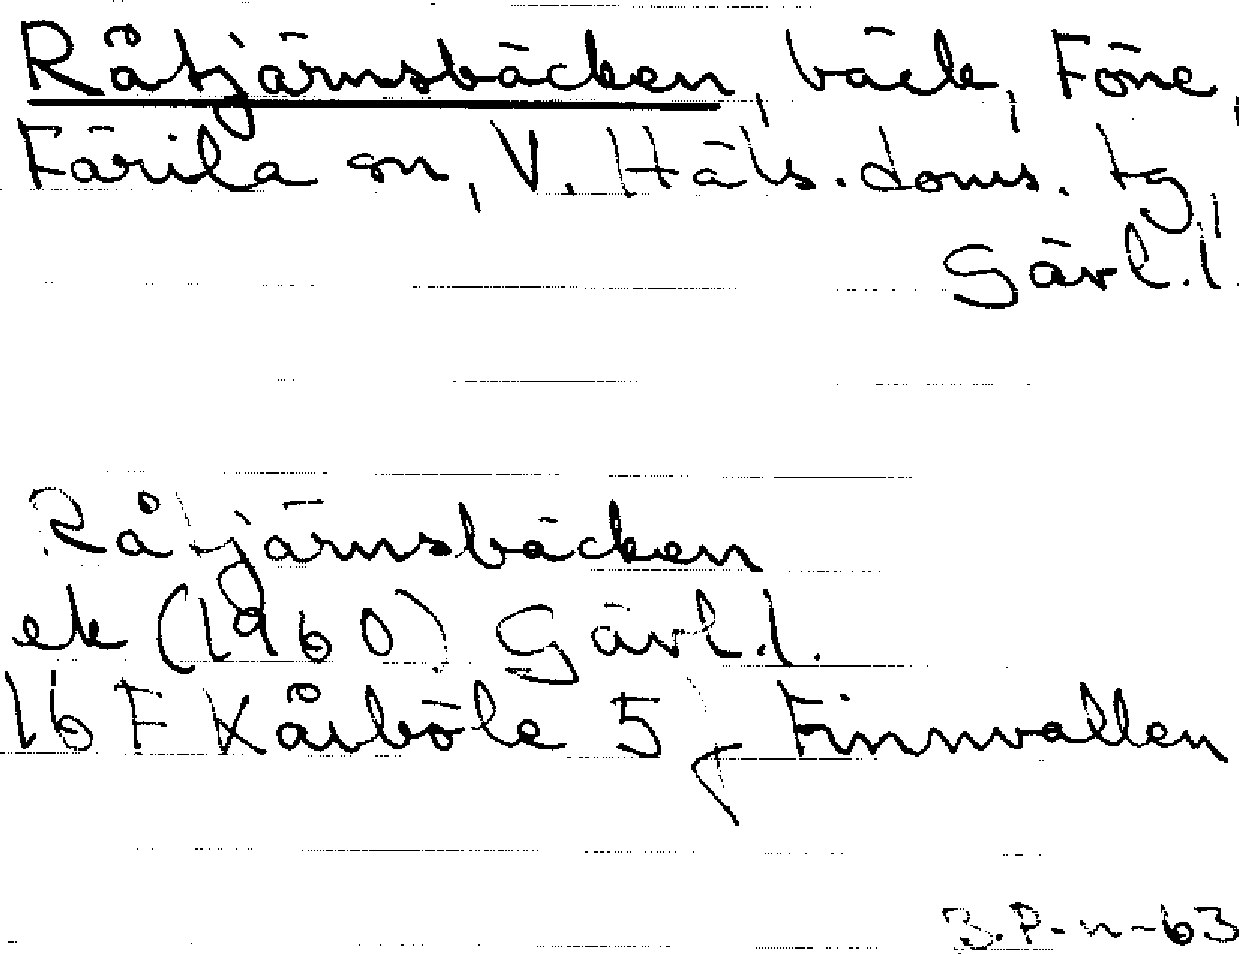 Råtjärnsbäcken, bäck, Föne,
Färila sn, V. Häls. doms. tg,
Gävl.l.
Råtjärnsbäcken
ek (1960) Gävl.l.
16 F Kårböle 5 f Finnvallen
B.P-n-63